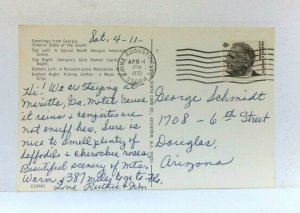 Sat. 4-11-
Greetings from Georgia
(Empire State of the South)
Top Left: A typical North Georgia Interstate
Scene.
Top Right: Georgia's Gold Domed Capitol
Night.
Bottom Left: A Reconstructed Moonshine
Bottom Right: Picking Cotton - a Major
Crop.
AUGUSTA
APR
PM
1970
6¢
Hi! We are staying at
Marietta, Ga. Motel 'cause
it rains & campsites are
not open here. Sure is
nice to smell plenty of
daffodils & cherokee roses.
Beautiful scenery of Mts.
Warm & 387 miles to go to Fla.
Love, Ruthie & Jim
George Schmidt
1708 - 6th Street
Douglas,
Arizona